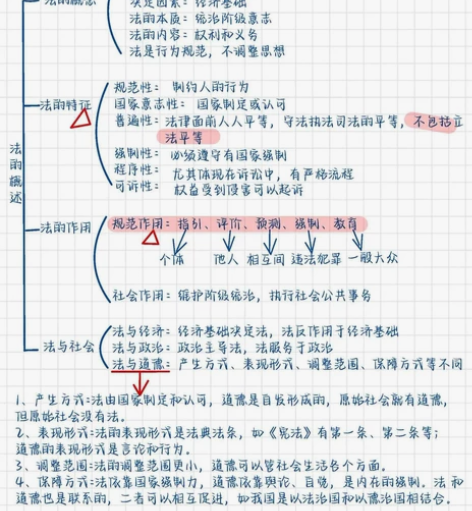 法的概述
法的概念
决定因素：经济基础
法的本质：统治阶级意志
法的内容：权利和义务
法是行为规范，不调整思想
法的特征
规范性：制约人的行为
国家意志性：国家制定或认可
普遍性：法律面前人人平等，守法执法司法的平等，不包括立
法平等
强制性：必须遵守有国家强制
程序性：尤其体现在诉讼中，有严格流程
可诉性：权益受到侵害可以起诉
法的作用
规范作用：指引、评价、预测、强制、教育
个体 他人 相互间 违法犯罪 一般大众
社会作用：维护阶级统治，执行社会公共事务
法与社会
法与经济：经济基础决定法，法反作用于经济基础
法与政治：政治主导法，法服务于政治
法与道德：产生方式、表现形式、调整范围、保障方式等不同
1、产生方式:法由国家制定和认可，道德是自发形成的，原始社会就有道德，
但原始社会没有法。
2、表现形式:法的表现形式是法典法条，如《宪法》有第一条、第二条等；
道德的表现形式是言论和行为。
3、调整范围:法的调整范围更小，道德可以管社会生活各个方面。
4、保障方式:法依靠国家强制力，道德依靠舆论、自觉，是内在的强制。法和
道德也是联系的，二者可以相互促进，如我国是以法治国和以德治国相结合。